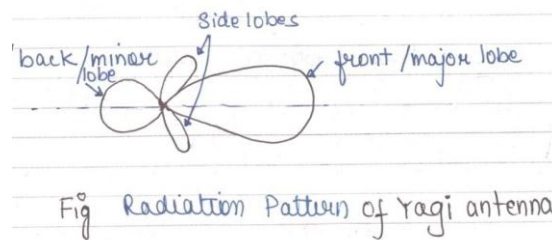 Side lobes
back/minor
lobe
front/major lobe
Fig Radiation Pattern of Yagi antenna